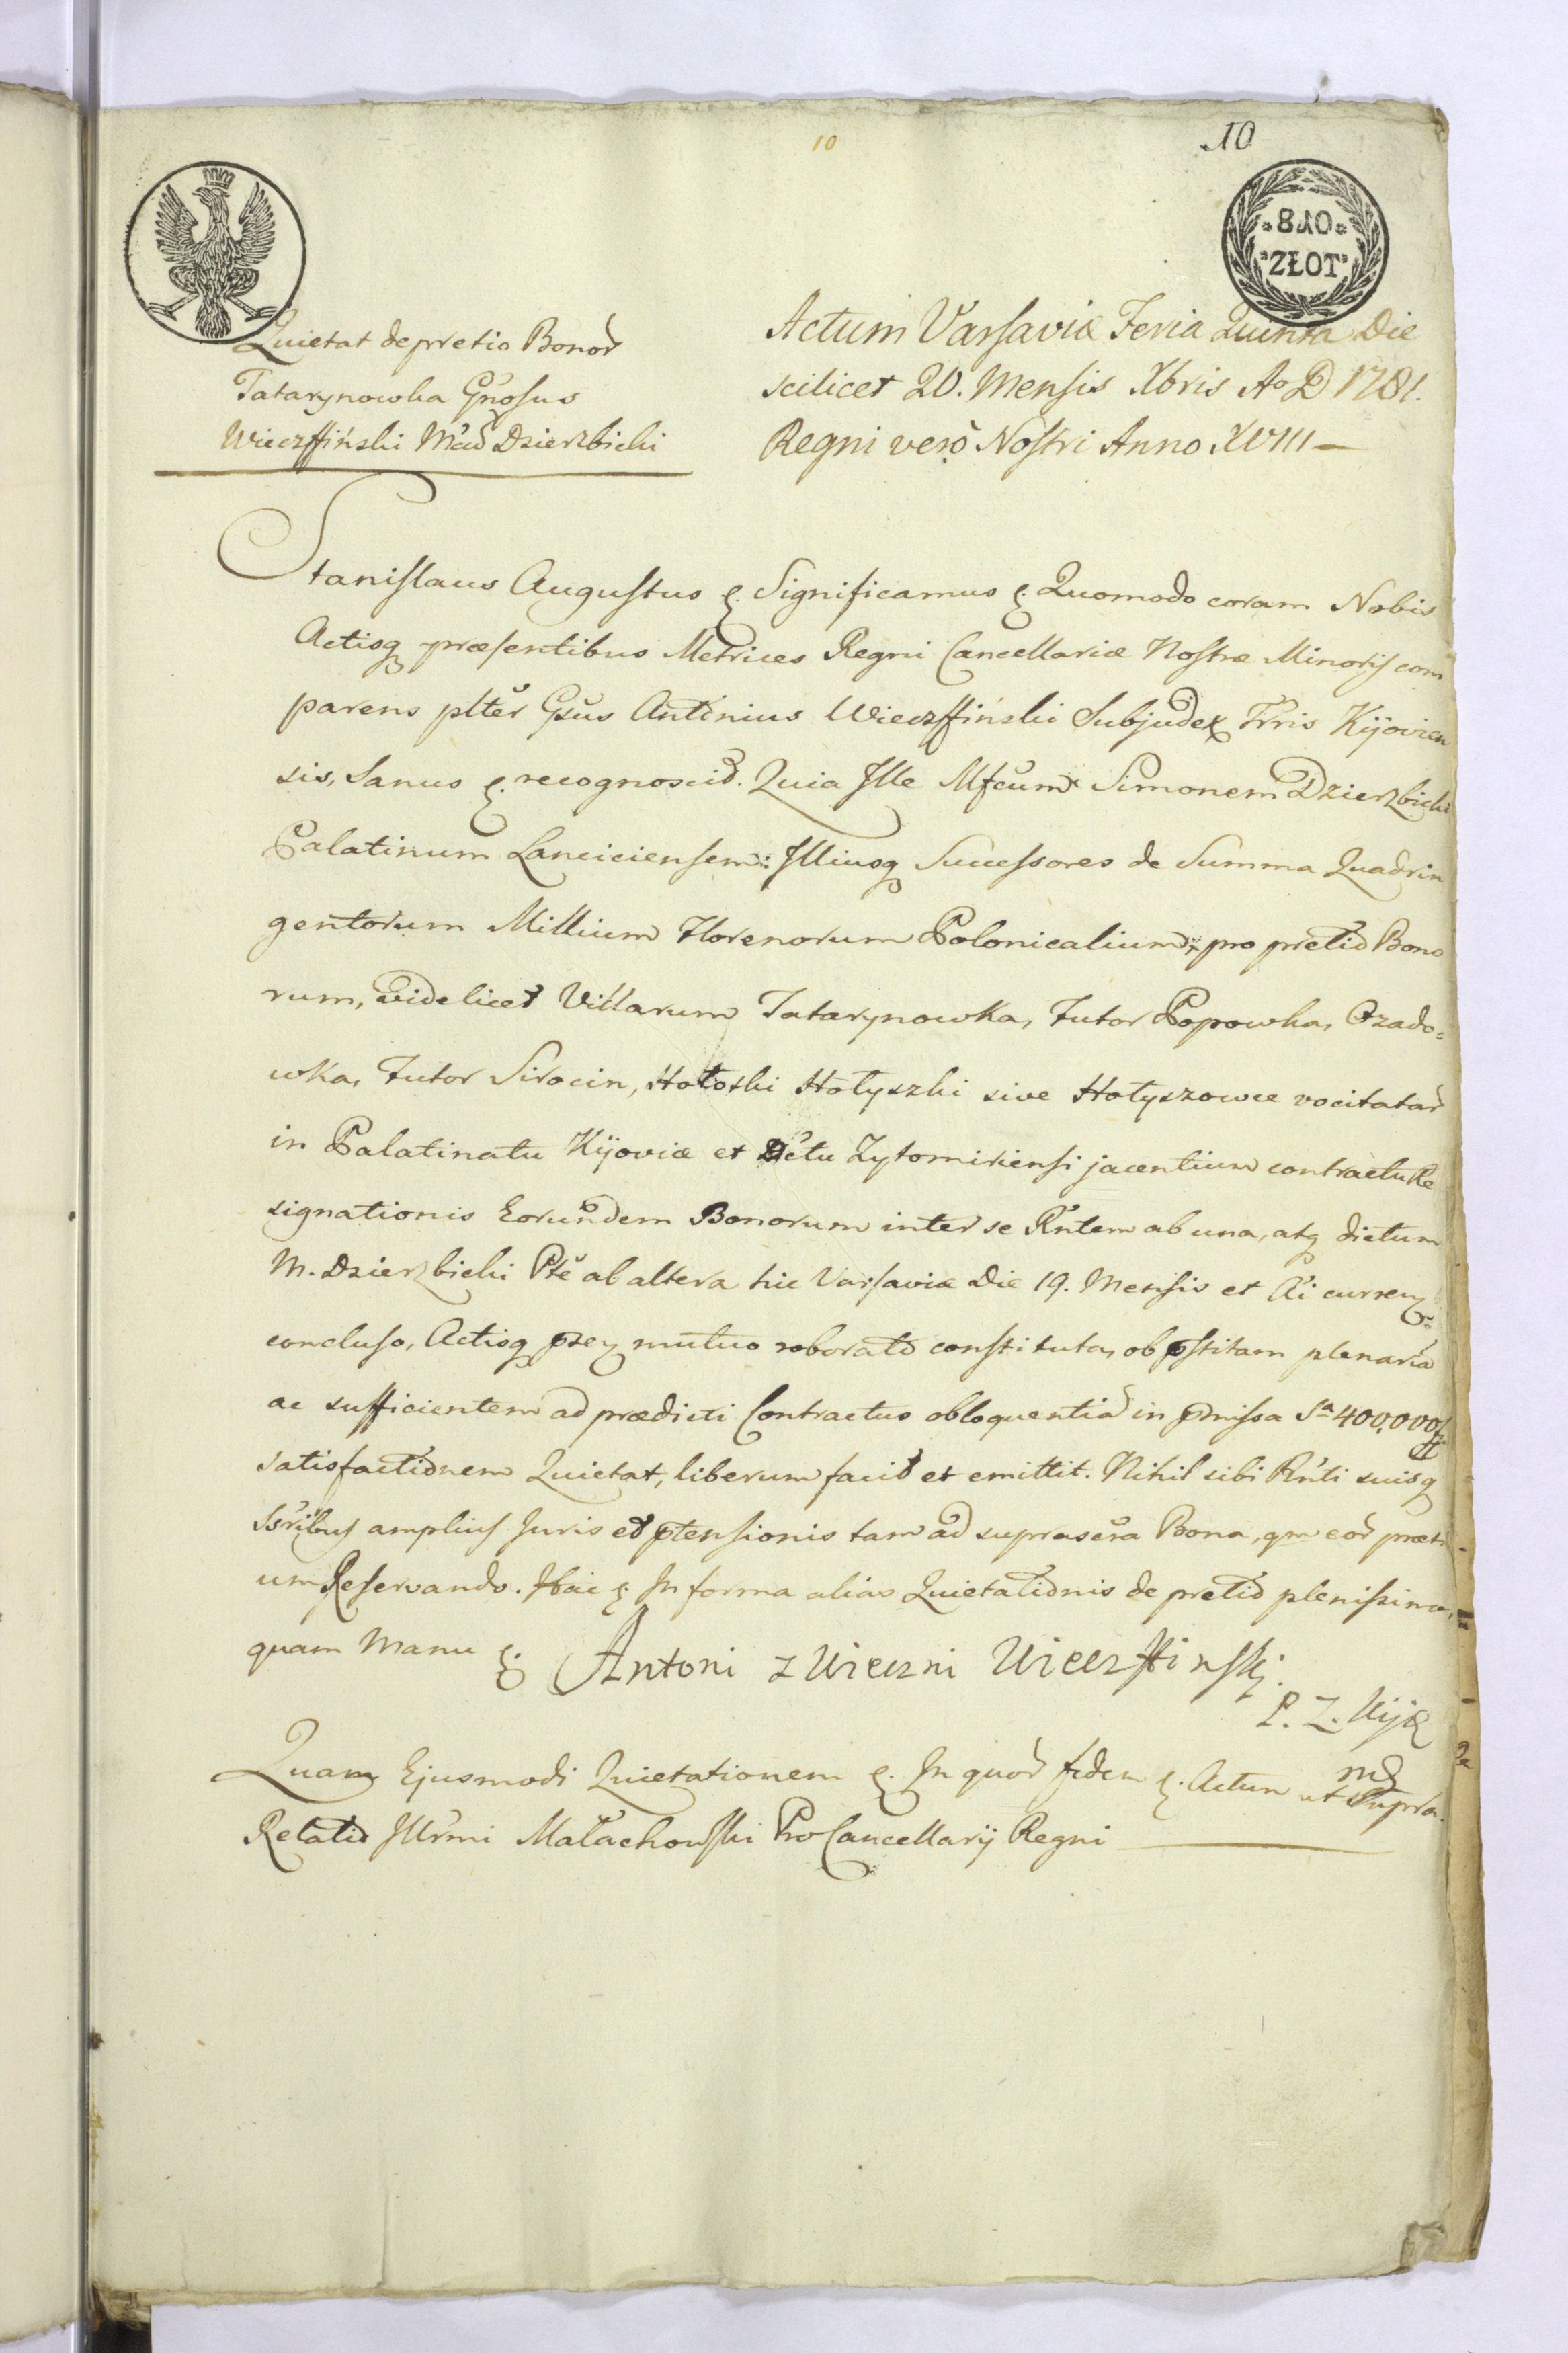 10
10
810
ZŁOT
Quietat de pretio Bonor̃
Tatarynowka Gnosus
Wieczffiński Dzierzbicki
Actum Varsaviæ Feria Quinta Die
scilicet 20. Mensis Xbris Ao D 1781.
Regni verò Nostri Anno XVIII —
Stanislaus Augustus &. Significamus &. Quomodo coram Nobis
Actisq præsentibus Metrices Regni Cancellariæ Nostræ Minoris com
parens pltěr Gsus Antonius Wieczffiński Subjudex Trris Kijovien
sis, Sanus &. recognoscit. Quia Ille Mfcum Simonem Dzierzbicki
Palatinum Lanciciensem: Illiusq Successores de Summa Quadrin
gentorum Millium Florenorum Polonicalium, pro pretio Bono
rum, videlicet Villarum Tatarynowka, Futor Popowka, Ozado=
wka, Futor Sirocin, Hołoski Hołyszki sive Hołyszowce vocitatar̃
in Palatinatu Kijoviæ et Dctu Zytomiriensi jacentium contractu Re
signationis Eorundem Bonorum inter se Rntem ab una, atq dictum
M. Dzierzbicki Ptě ab altera hic Varsaviæ Die 19. Mensis et Ai curren
concluso, Actisq psen mutuo roborato constituta, ob pstitam plenaria
ac sufficientem ad prædicti Contractus obloquentia in pmissa Sa 400,000 f
satisfactionem Quietat, liberum facit et emittit. Nihil sibi Rnti suisq
Ssribus amplius Juris et ptensionis tam ad suprascra Bona, qm eor̃ præti
um Reservando. Hac &. In forma alias Quietationis de pretio plenissima,
quam Manu &. Antoni z Wieczni Wieczffinski.
P. Z. Kij
mp
Quam Ejusmodi Quietationem &. In quor̃ fidem &. Actum ut Supra.
Relatio Illrmi Małachowski ProCancellarij Regni